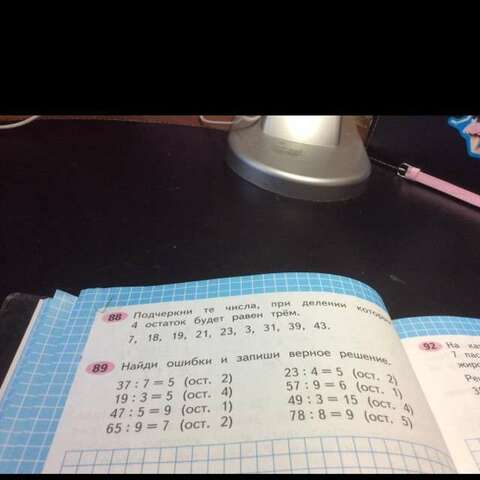 88 Подчеркни те числа, при делении
4 остаток будет равен трём.
7, 18, 19, 21, 23, 3, 31, 39, 43.
89 Найди ошибки и запиши верное решение.
37 : 7 = 5 (ост. 2) 23 : 4 = 5 (ост. 2)
19 : 3 = 5 (ост. 4) 57 : 9 = 6 (ост. 1)
47 : 5 = 9 (ост. 1) 49 : 3 = 15 (ост. 4)
65 : 9 = 7 (ост. 2) 78 : 8 = 9 (ост. 5)
92 На
7